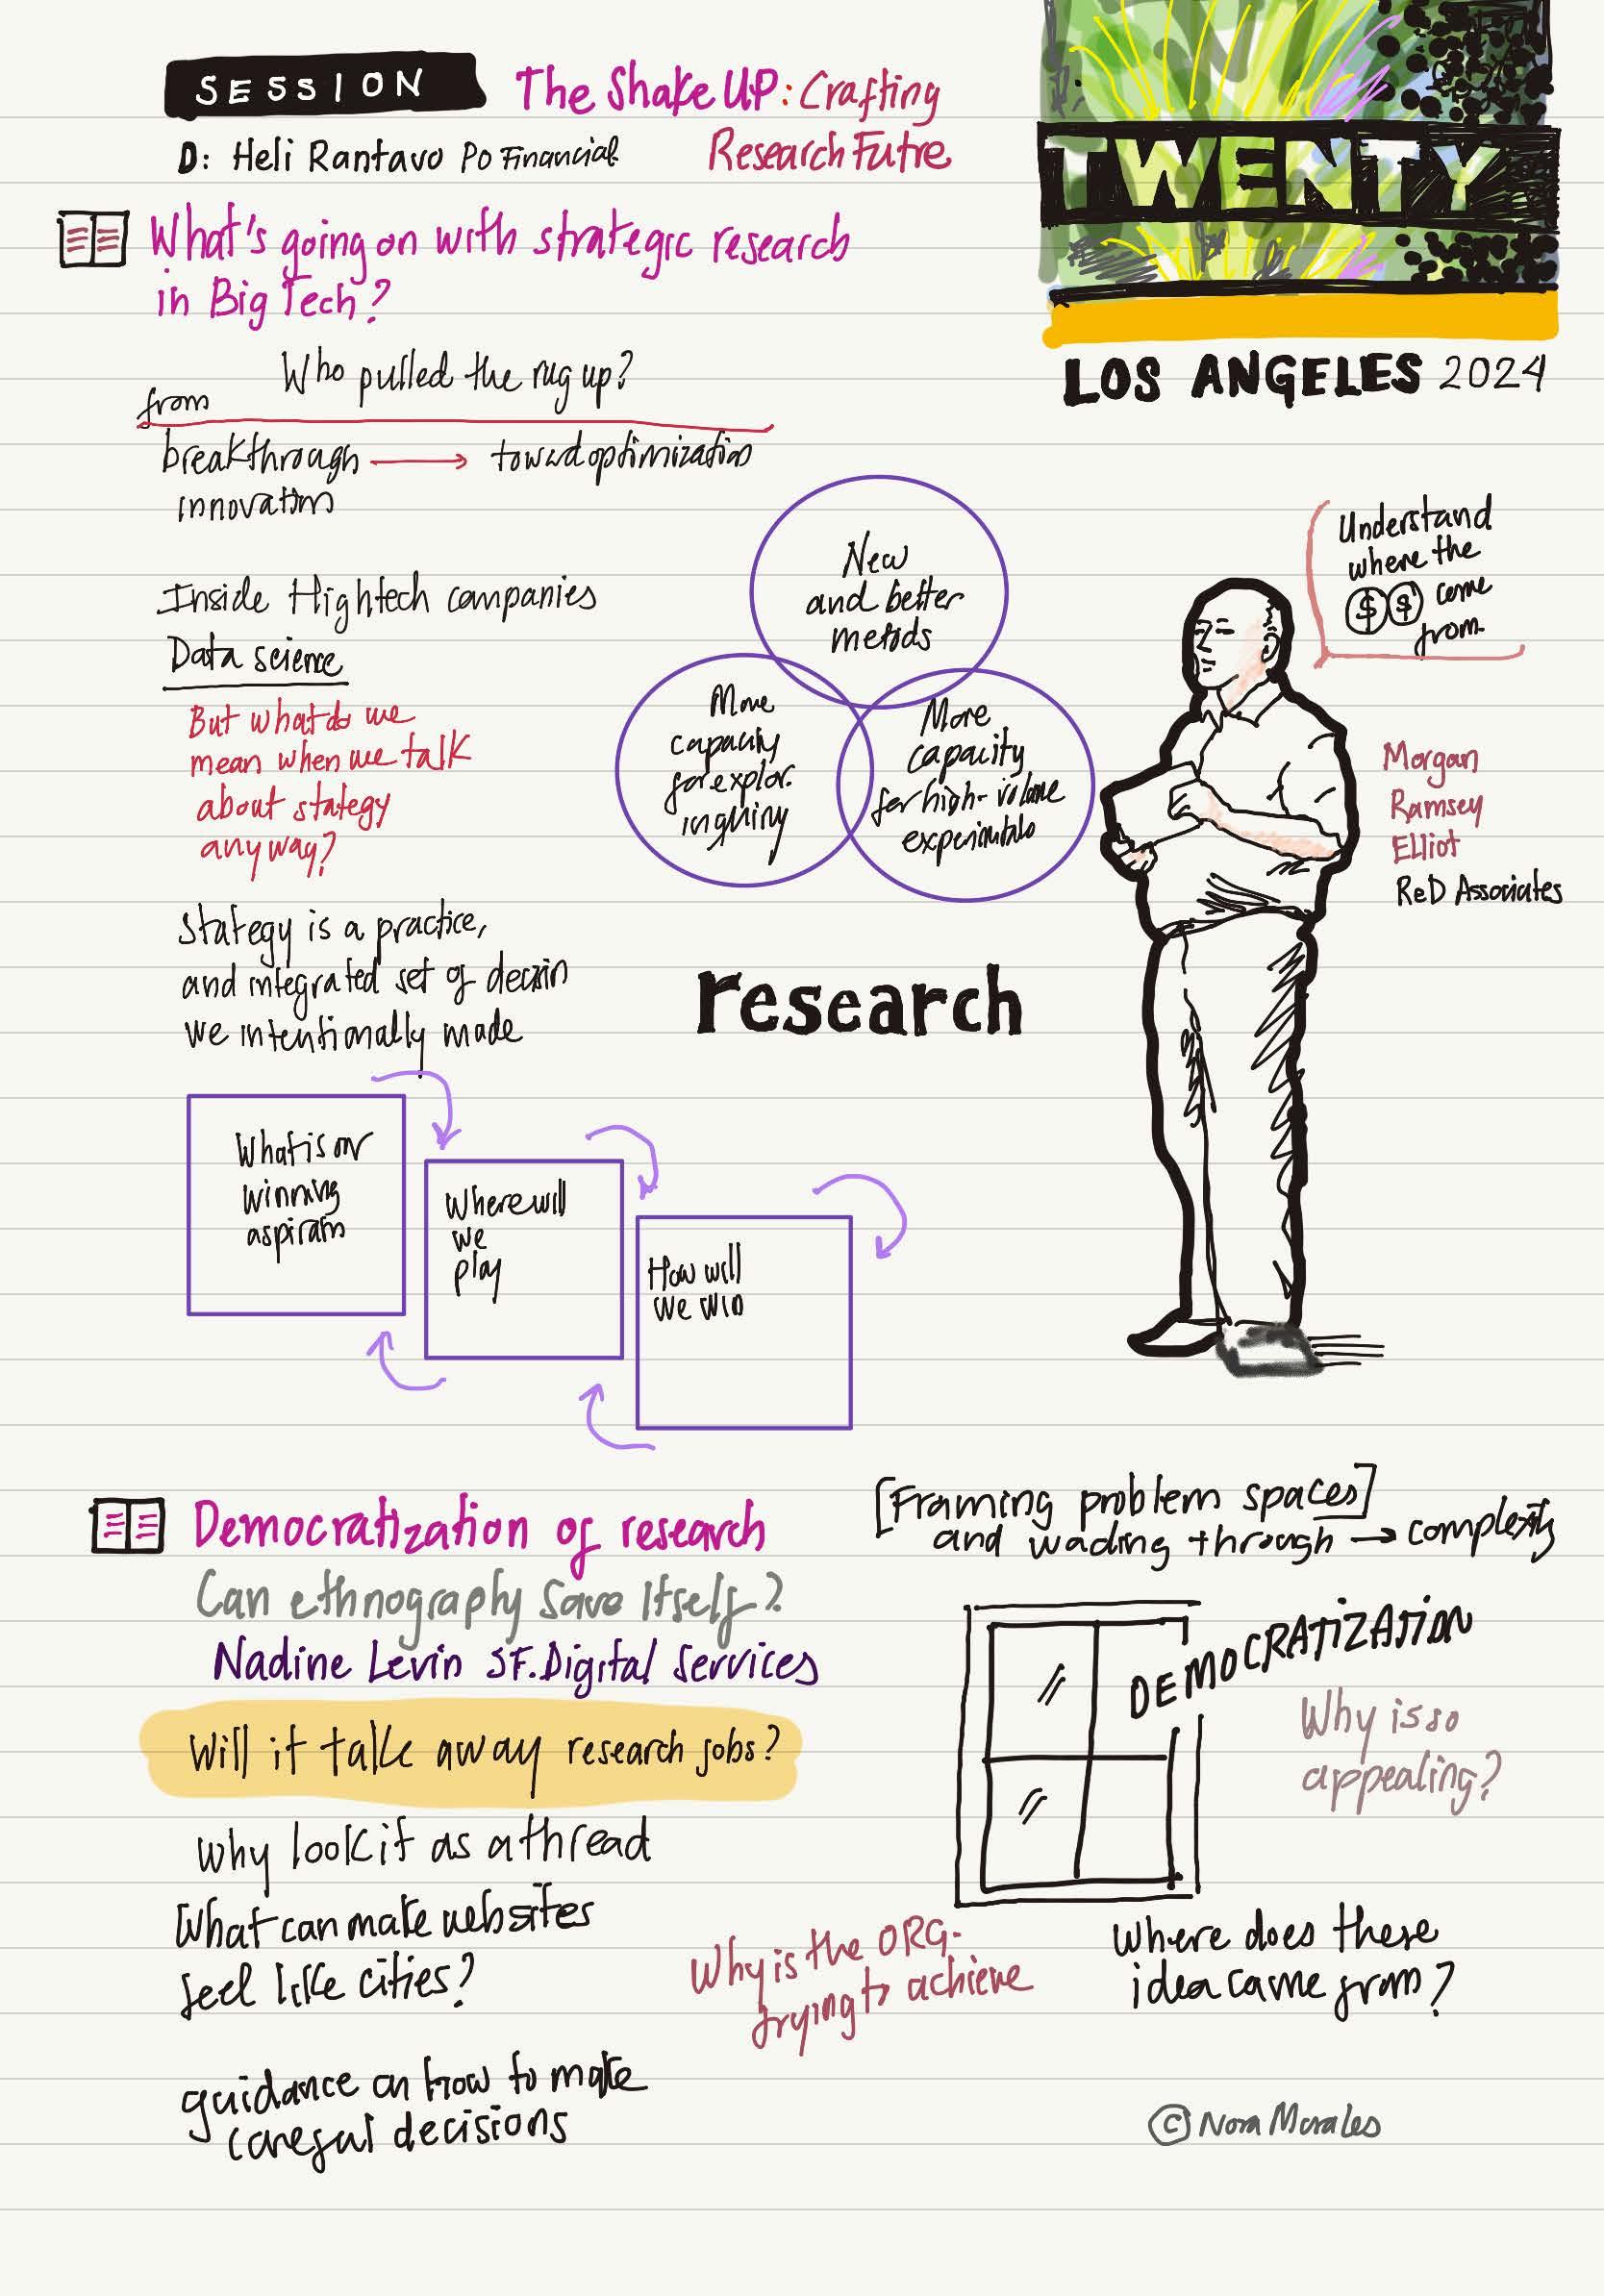 SESSION
The Shake UP: Crafting
Research Futre
D: Heli Rantavo Po Financial
TWENTY
LOS ANGELES 2024
What's going on with strategic research
in Big Tech?
Who pulled the rug up?
from
breakthrough → toward optimization
innovations
Inside Hightech companies
Data science
But what do we
mean when we talk
about stategy
any way?
New
and better
metods
More
capacity
for explor.
inquiry
More
capacity
for high-volume
Understand
where the
$ $ come
from
Morgan
Ramsey
Elliot
ReD Associates
Stategy is a practice,
and integrated set of
we intentionally made
research
What is our
winning
Where will
we
play
How will
we win
Democratization of research
Can ethnography Save Itself?
Nadine Levin SF. Digital Services
Will it take away research jobs?
Why look it as a thread
What can make websites
feel like cities?
guidance on how to make
careful decisions
[Framing problem spaces]
and wading through → complexity
DEMOCRATIZATION
Why is so
appealing?
Why is the ORG.
trying to achieve
Where does these
idea came from?
© Nora Morales